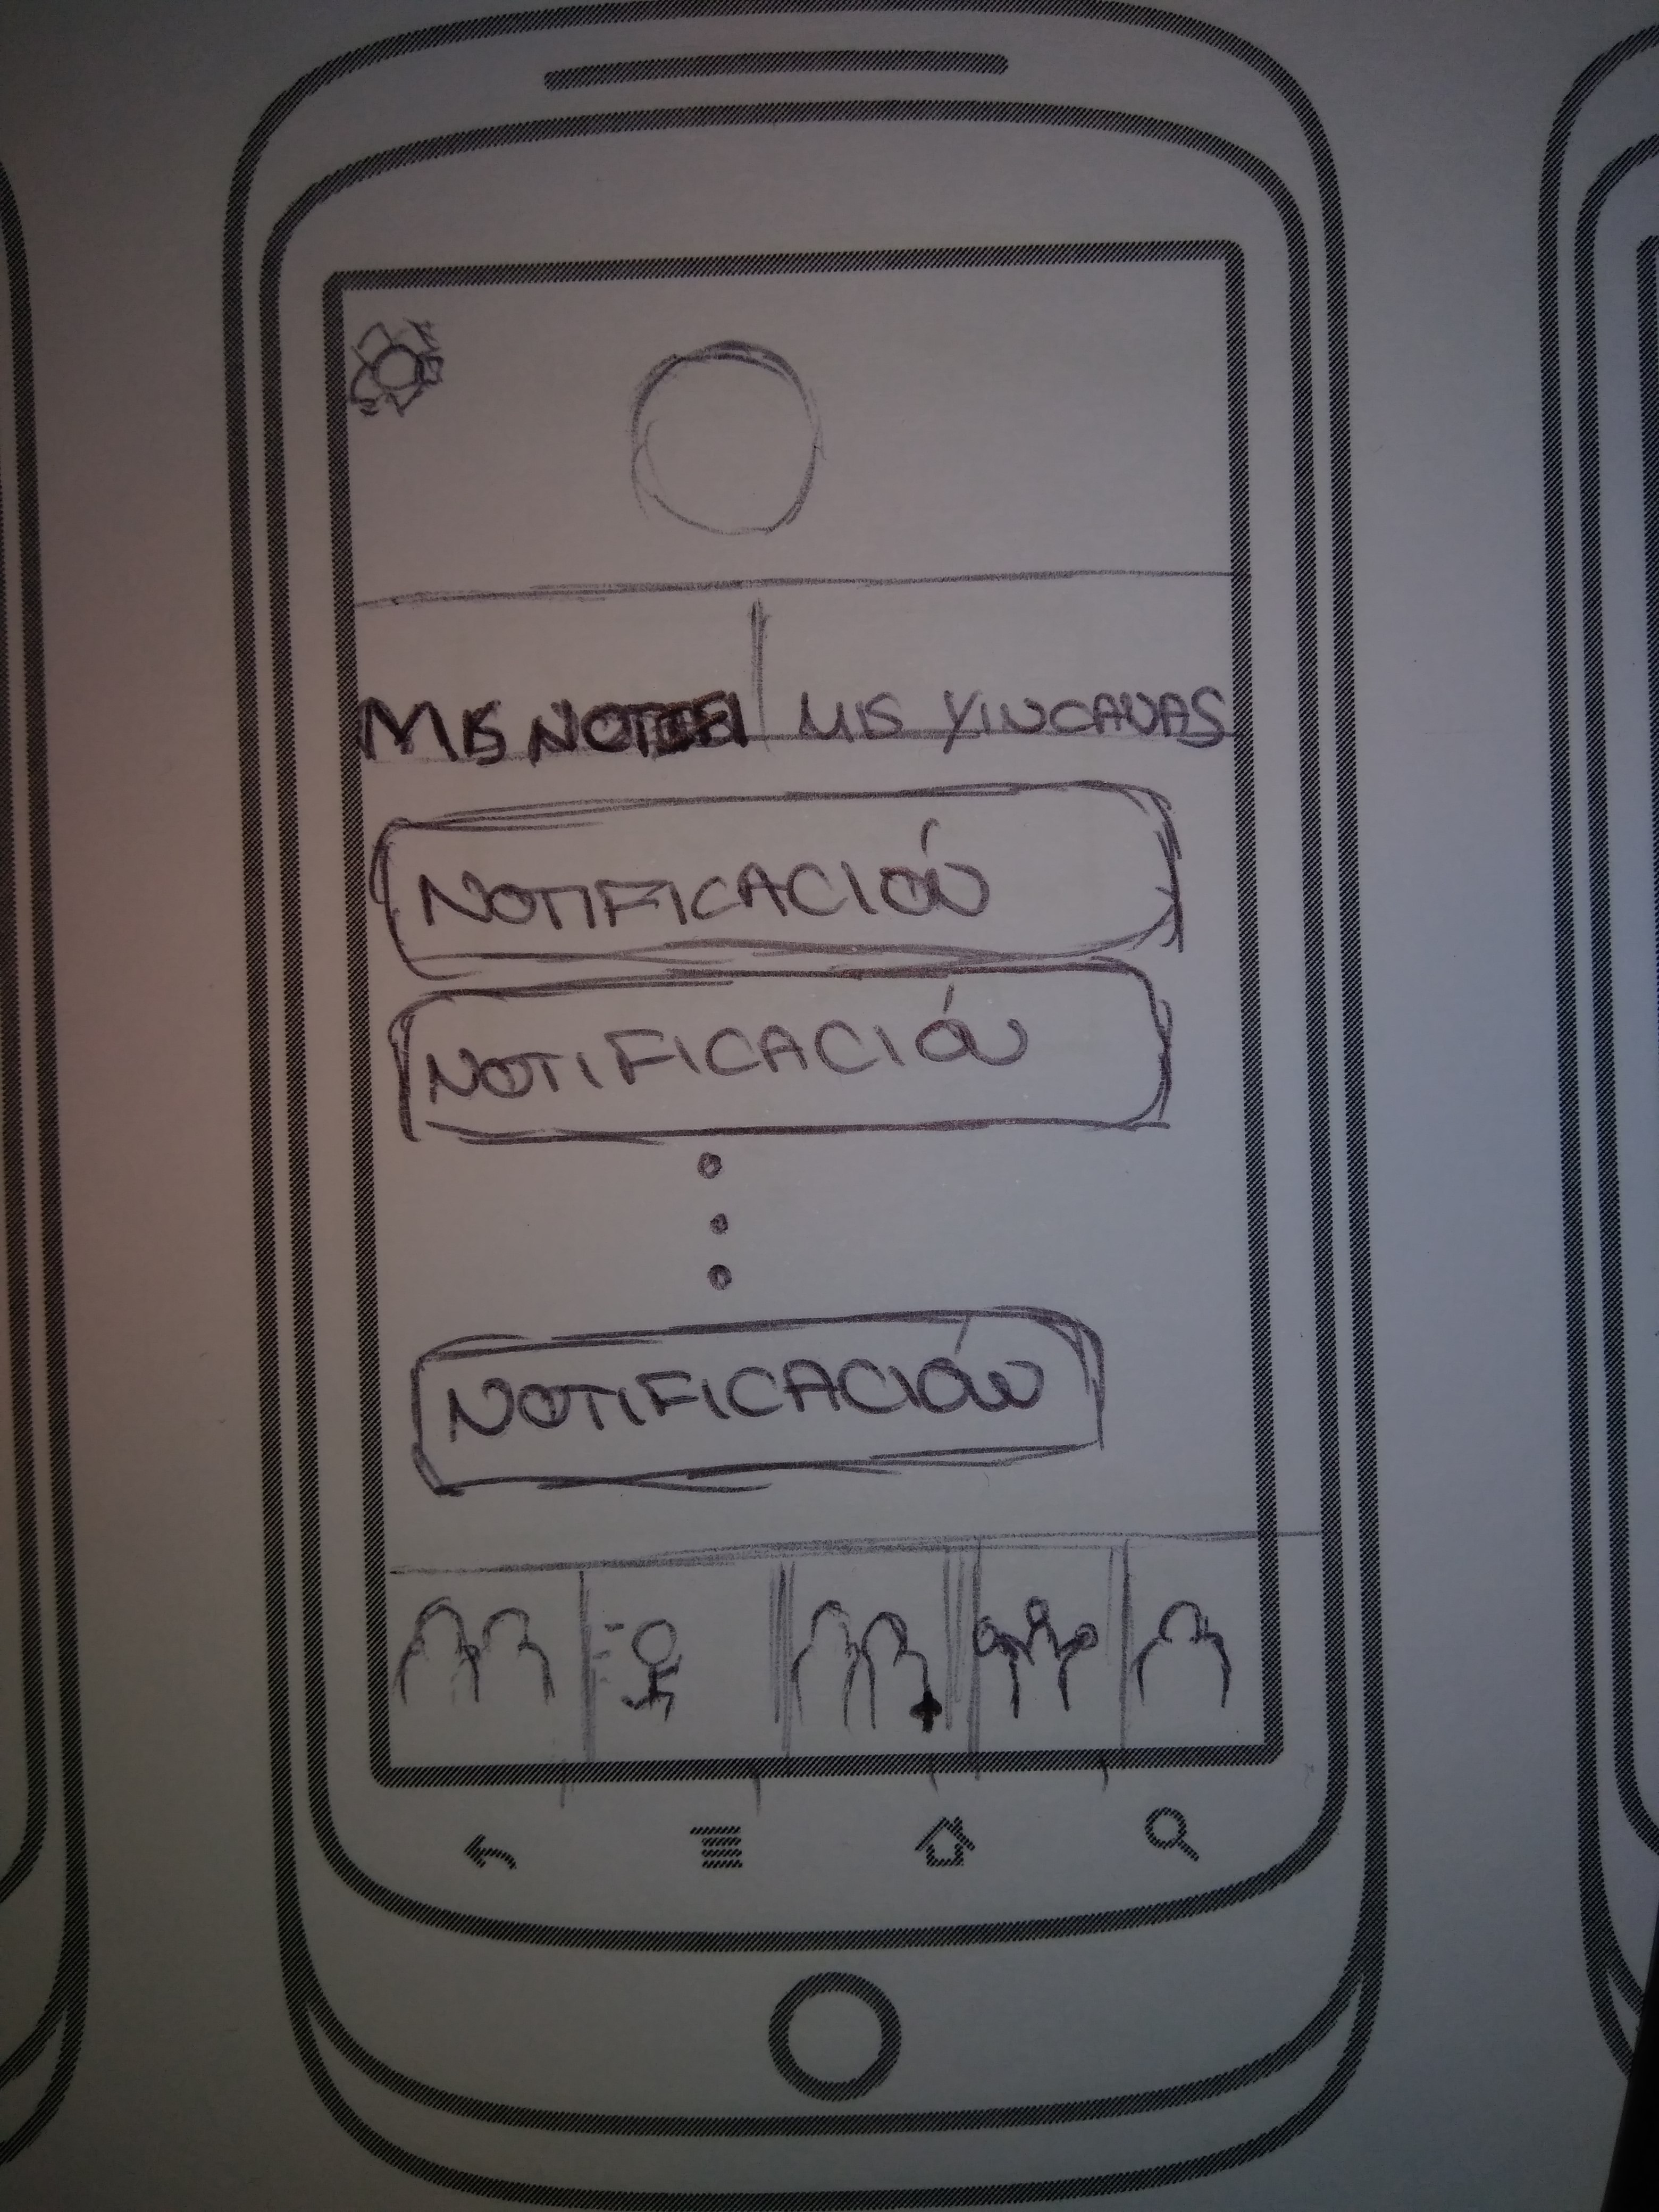 MIS MIS YINCANAS
NOTIFICACIÓN
NOTIFICACIÓN
NOTIFICACIÓN